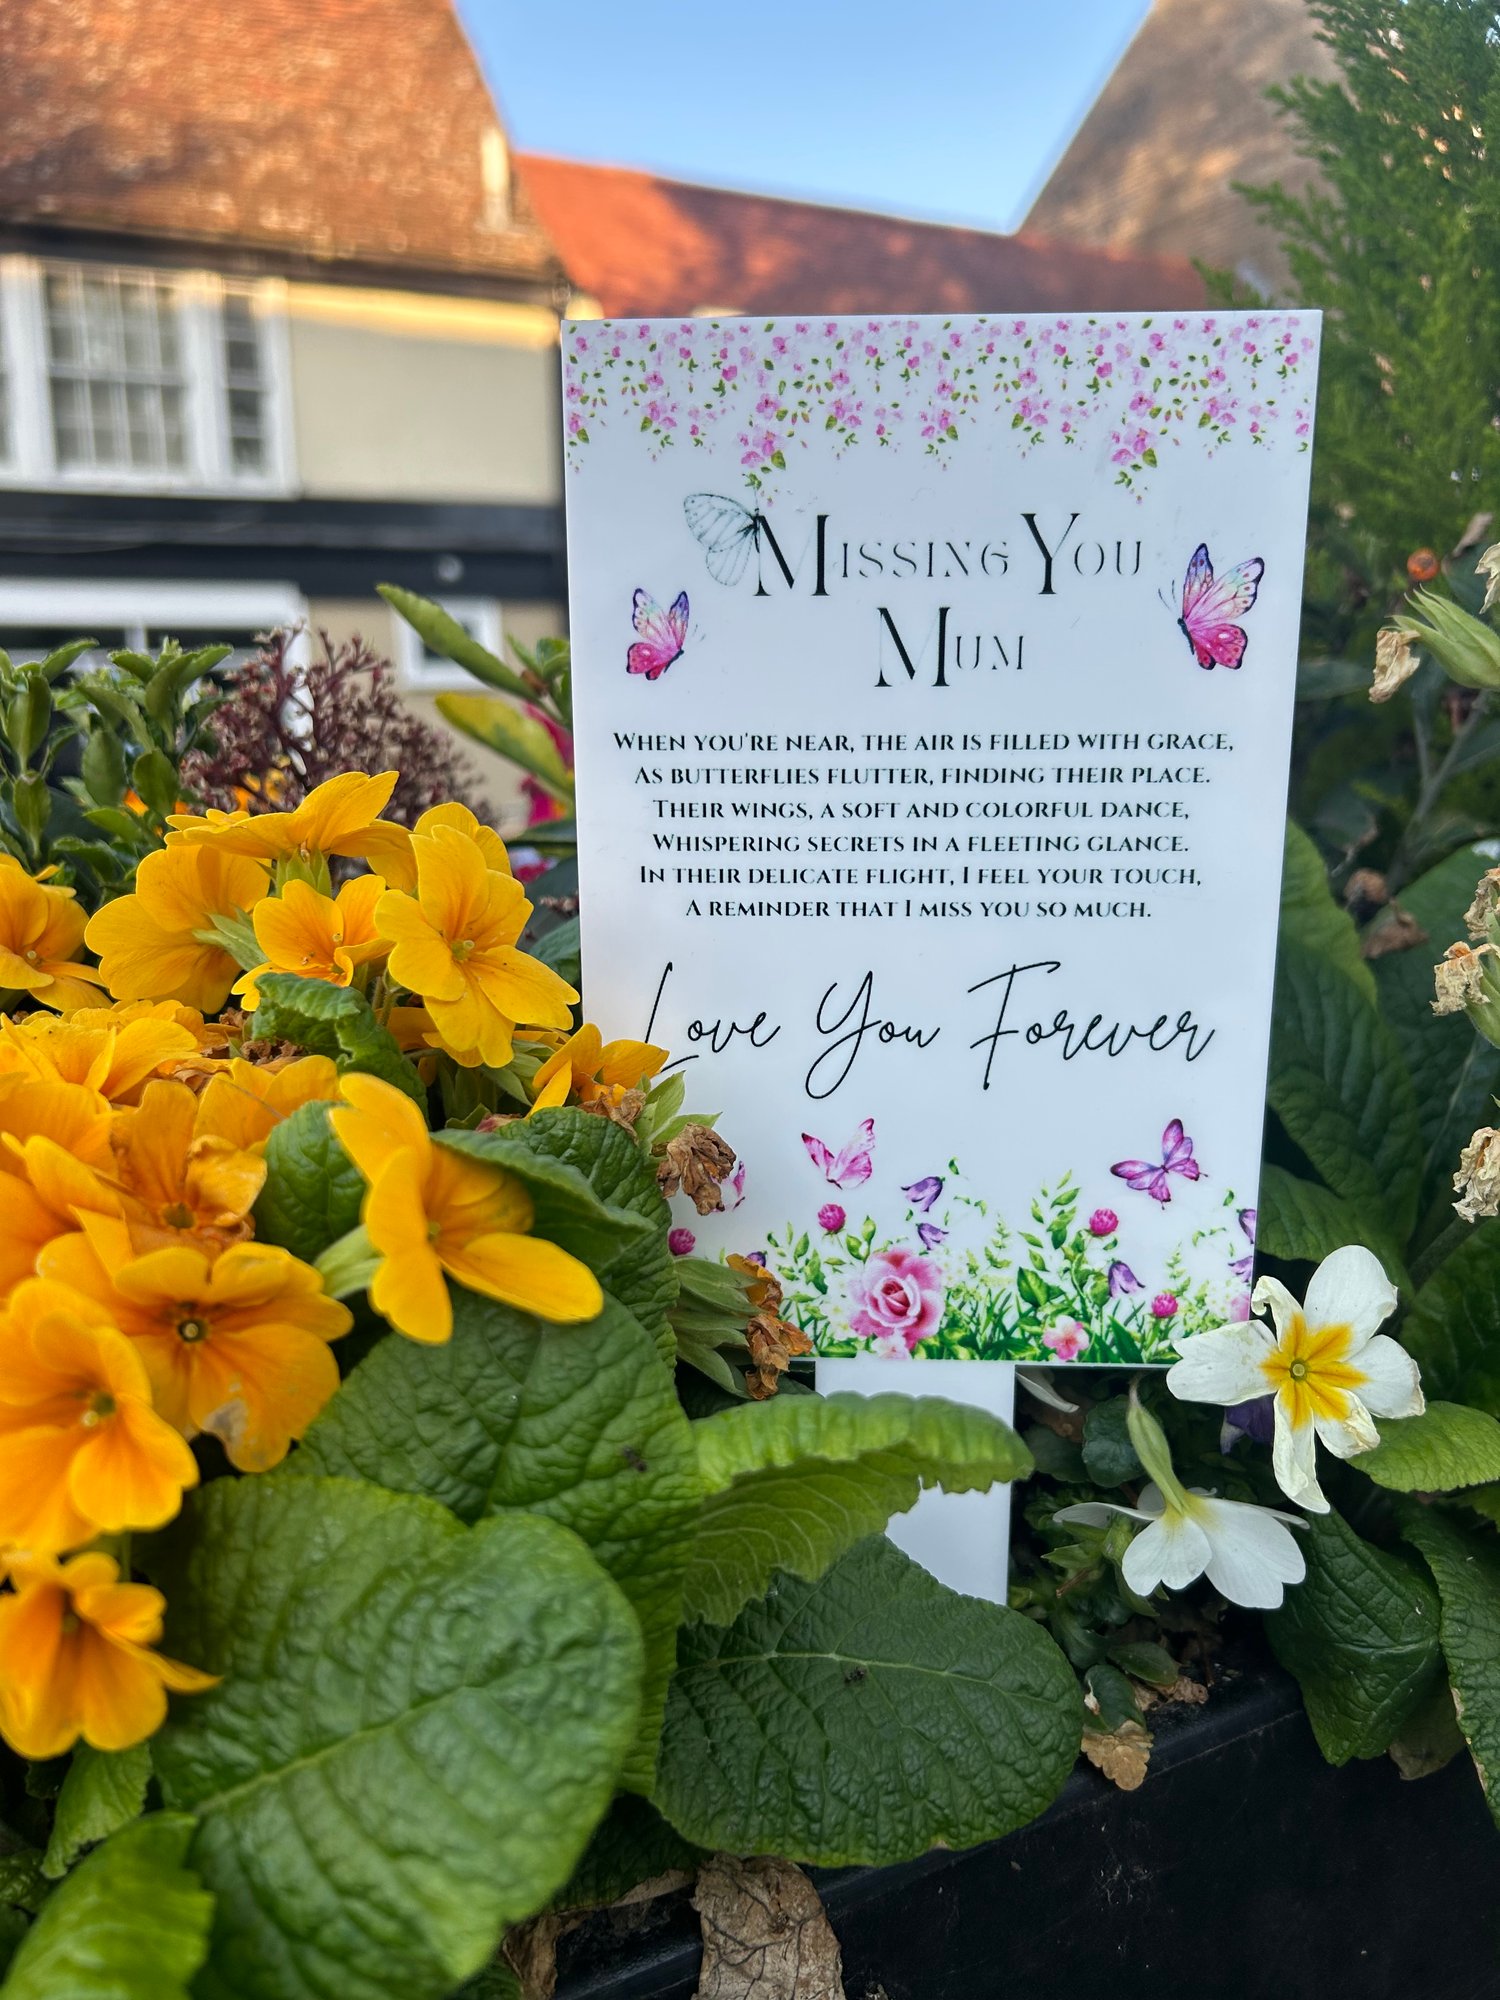 Missing You
Mum
When you're near, the air is filled with grace,
As butterflies flutter, finding their place.
Their wings, a soft and colorful dance,
Whispering secrets in a fleeting glance.
In their delicate flight, I feel your touch,
A reminder that I miss you so much.
Love You Forever